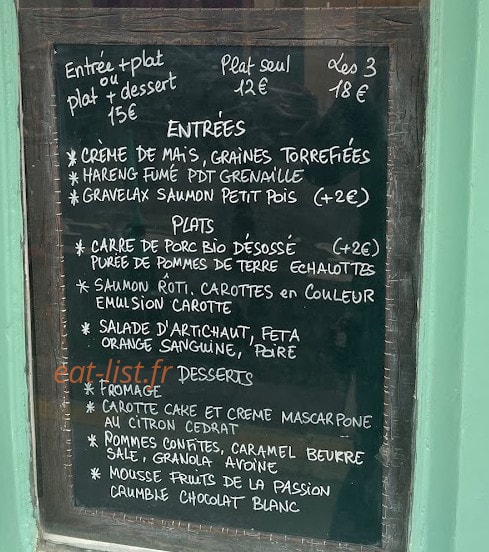 Entrée + plat
ou
plat + dessert
15€
Plat seul
12€
Les 3
18€
ENTRÉES
* CRÈME DE MAÏS, GRAINES TORREFIÉES
* HARENG FUMÉ PDT GRENAILLE
* GRAVELAX SAUMON PETIT POIS (+2€)
PLATS
* CARRE DE PORC BIO DÉSOSSÉ (+2€)
PURÉE DE POMMES DE TERRE ECHALOTTES
* SAUMON RÔTI. CAROTTES en COULEUR
EMULSION CAROTTE
* SALADE D'ARTICHAUT, FETA
ORANGE SANGUINE, POIRE
eat-list.fr
DESSERTS
* FROMAGE
* CAROTTE CAKE ET CREME MASCARPONE
AU CITRON CEDRAT
* POMMES CONFITES, CARAMEL BEURRE
SALE, GRANOLA AVOINE
* MOUSSE FRUITS DE LA PASSION
CRUMBLE CHOCOLAT BLANC